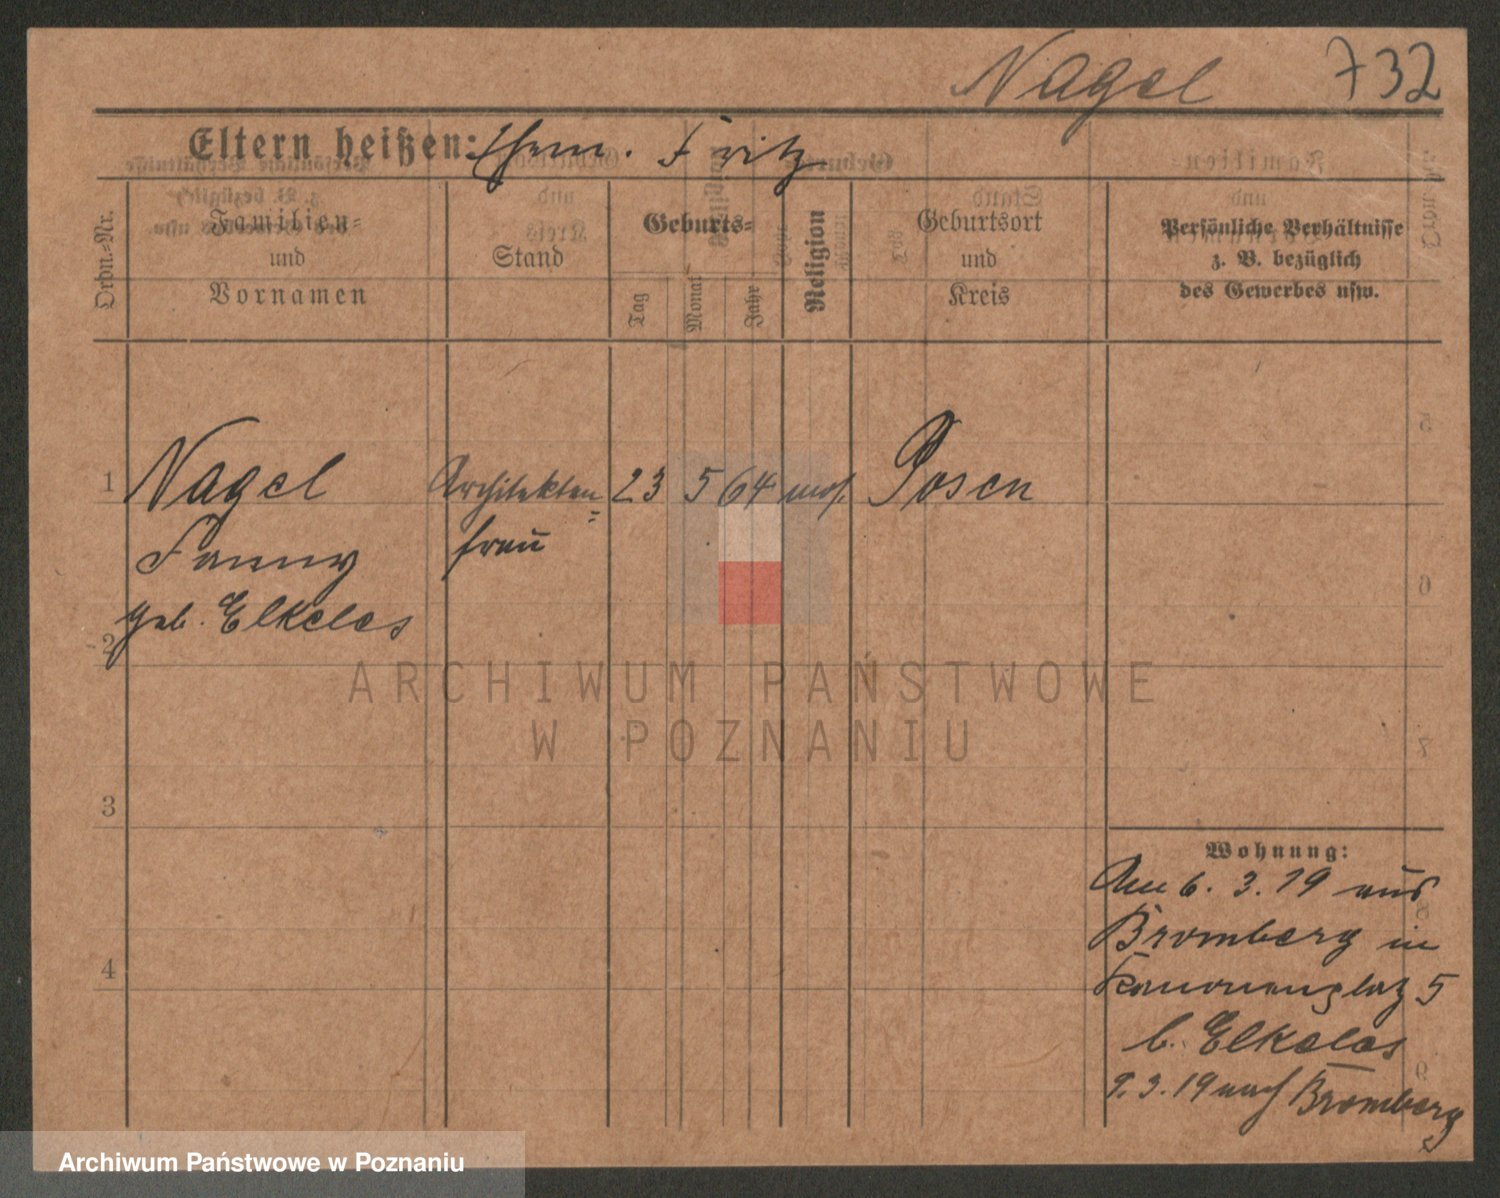 Nagel 732
Eltern heißen: Ehem. Fritz
Ordn.-Nr.
Familien-
und
Vornamen
Stand
Geburts-
Tag
Monat
Jahr
Religion
Geburtsort
und
Kreis
Persönliche Verhältnisse
z. B. bezüglich
des Gewerbes usw.
1 Nagel Architekten= 23 5 64 mos. Posen
Fanny frau
geb. Elkeles
2
3
4
Wohnung:
Am 6. 3. 19 aus
Bromberg in
Kanonenplatz 5
b. Elkeles
9. 3. 19 nach Bromberg
ARCHIWUM PAŃSTWOWE
W POZNANIU
Archiwum Państwowe w Poznaniu